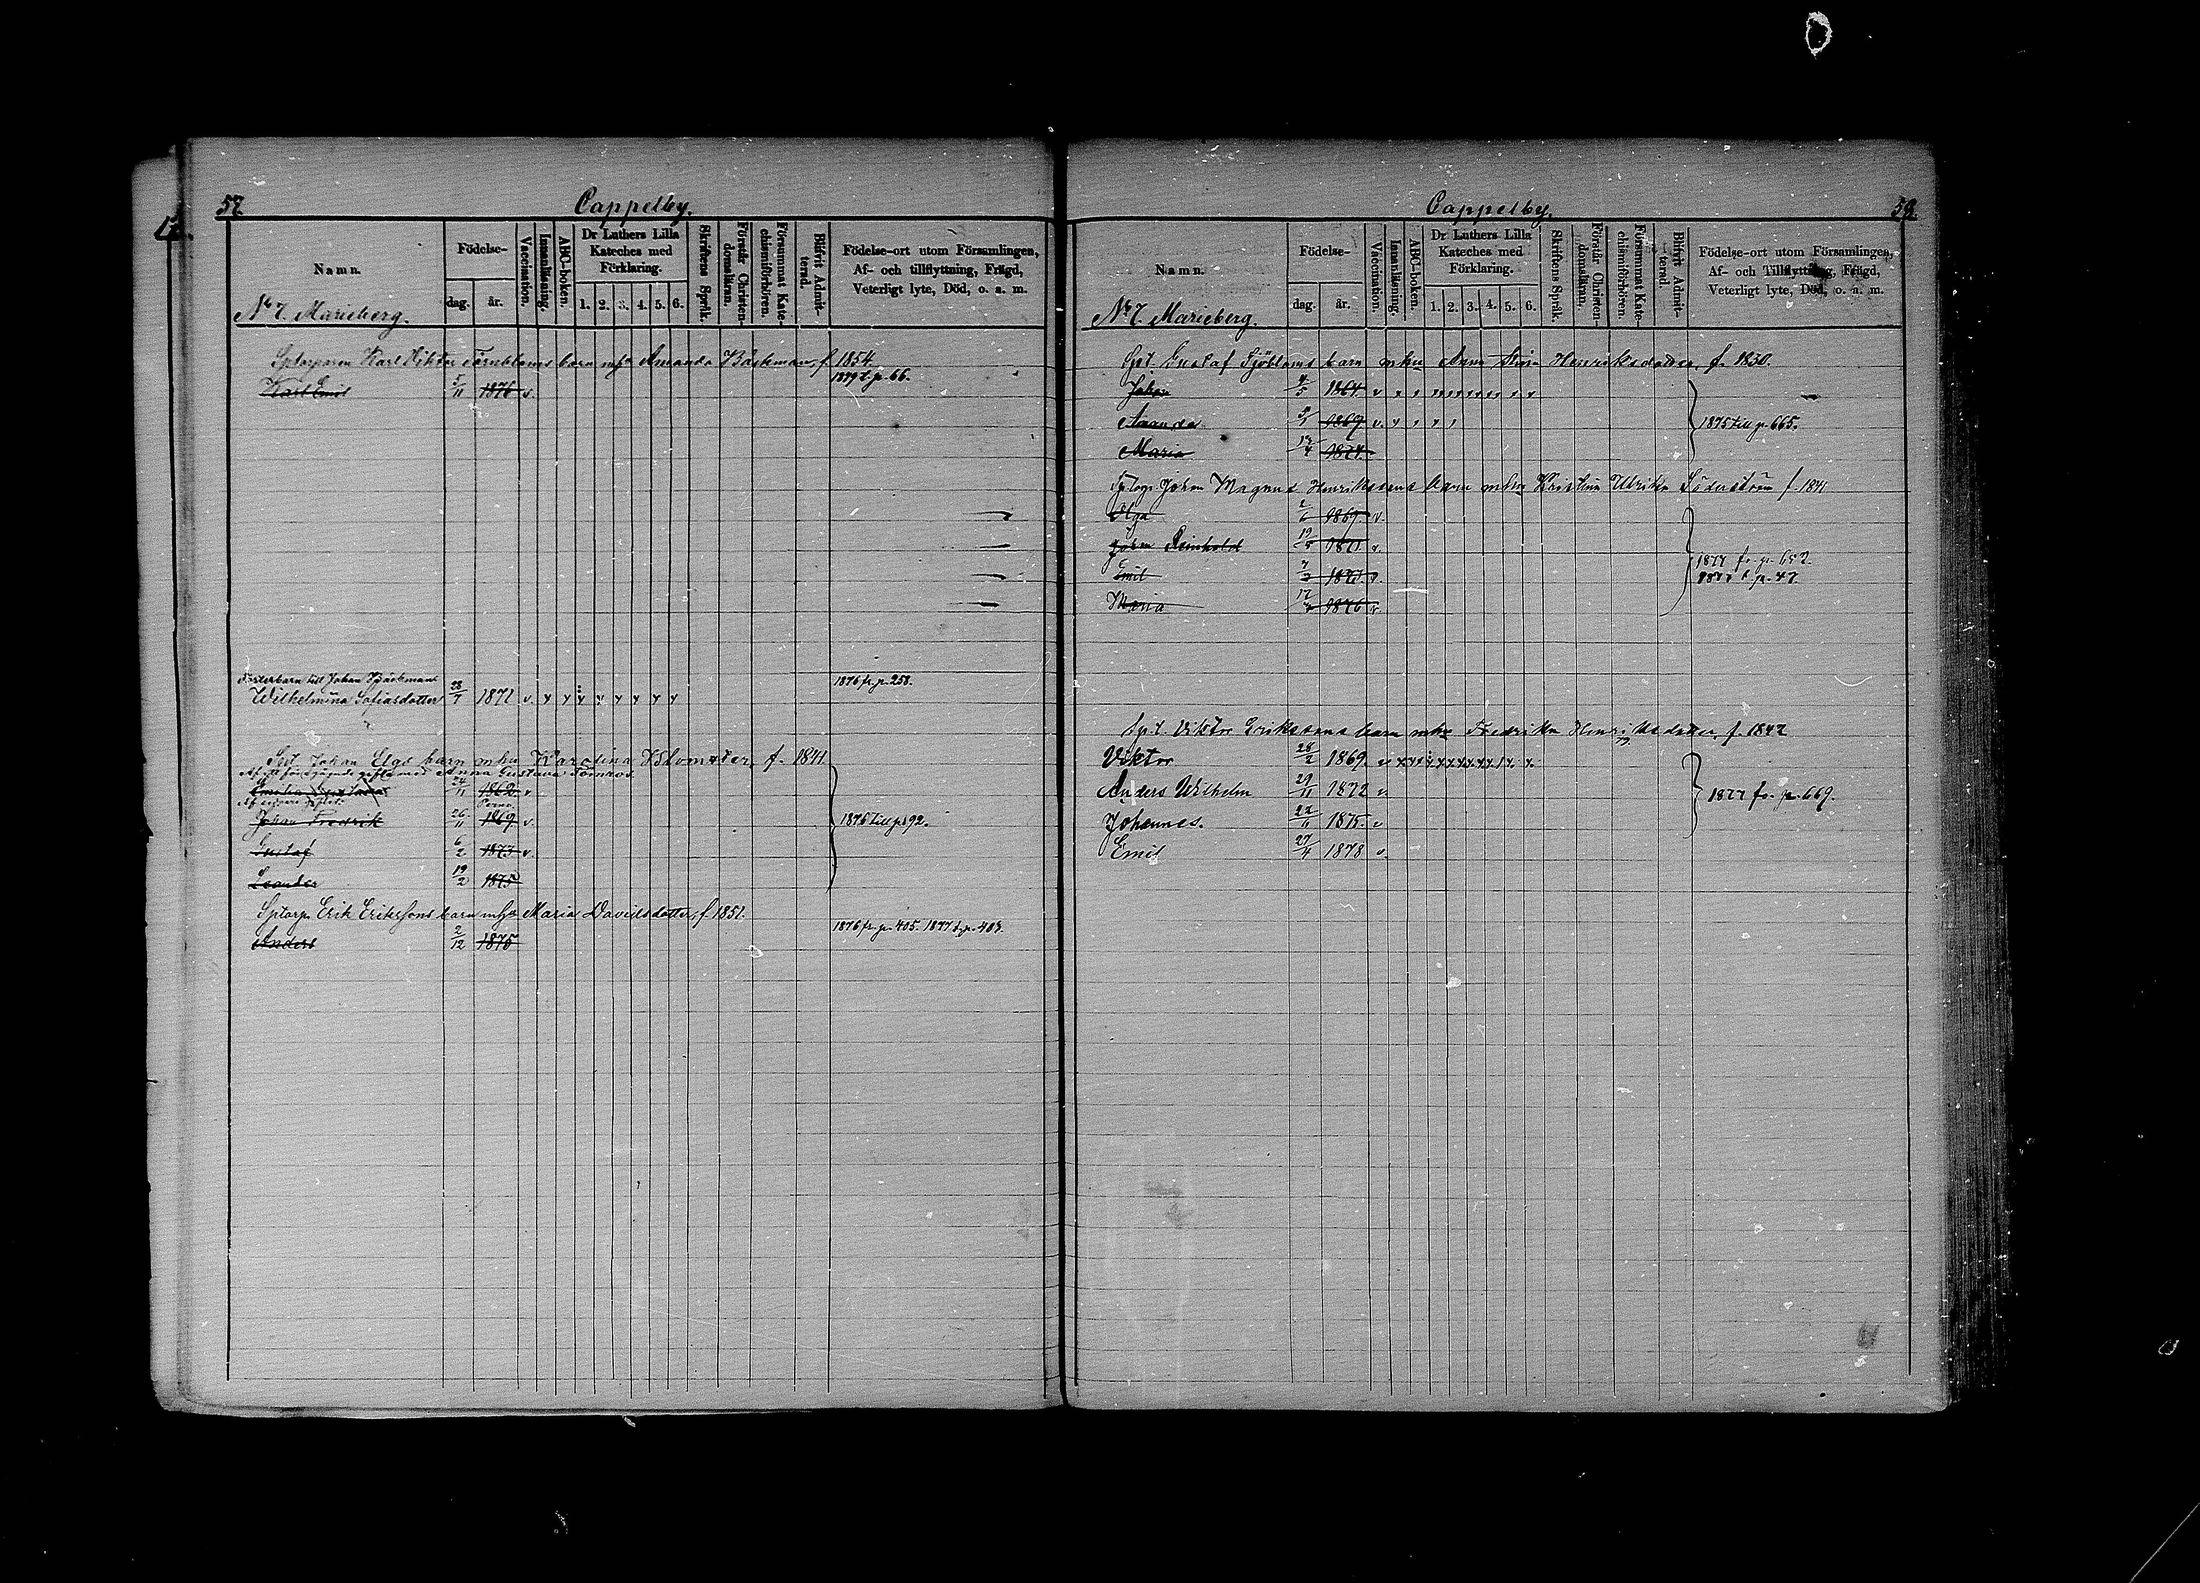 57.
Cappelby.
Namn.
Födelse-
dag.
år.
Vaccination.
Innanläsning.
ABC-boken.
Dr Luthers Lilla
Kateches med
Förklaring.
1. 2. 3. 4. 5. 6.
Skriftens Språk.
Förstår Christen-
domsläran.
Försummat Kate-
chismiförhören.
Blifvit Admit-
terad.
Födelse-ort utom Församlingen,
Af- och tillflyttning, Frägd,
Veterligt lyte, Död, o. a. m.
No 7. Marieberg.
Sptorparen Karl Viktor Törnbloms barn mha Amanda Bäckman, f. 1854
Karl Emil 5/11 1876 v. 1879 t. p. 66.
Fosterbarn till Johan Bäckmans 1876 fr. p. 258.
Wilhelmina Sofiasdotter 28/7 1871 v.
Spt. Johan Elgs barn mhu Karolina Blomster, f. 1841
Anna Gustava Törnros
Emilia Gustava 24/11 1862 v
Johan Fredrik 26/11 1869 v. 1876 till p. 92.
Gustaf 6/2 1873 v.
Leander 19/2 1875
Sptorp. Erik Erikssons barn mha Maria Davidsdotter, f. 1851.
Anders 2/12 1875 1876 fr. p. 405. 1877 t. p. 404.
58.
Cappelby.
Namn.
Födelse-
dag.
år.
Vaccination.
Innanläsning.
ABC-boken.
Dr Luthers Lilla
Kateches med
Förklaring.
1. 2. 3. 4. 5. 6.
Skriftens Språk.
Förstår Christen-
domsläran.
Försummat Kate-
chismiförhören.
Blifvit Admit-
terad.
Födelse-ort utom Församlingen,
Af- och Tillflyttning, Frägd,
Veterligt lyte, Död, o. a. m.
No 7. Marieberg.
Spt. Gustaf Sjöbloms barn mhu Anna Stina Henriksdotter, f. 1830.
Johan 4/5 1864. v
Amanda 1869 v. 1875 till p. 665.
Maria 1874.
Johan Magnus Henrikssons barn mhu Kristina Ulrika Söderström f. 1841
Olga 2/6 1869. v.
Johan Reinhold 1871 v. 1877 fr. p. 652.
Emil 1873. v. 1877 t. p. 47.
Maria 1876 v
Spt. Viktor Erikssons barn mhu Fredrika Henriksdotter, f. 1842
Viktor 28/2 1869. v
Anders Wilhelm 29/11 1872 v 1877 fr. p. 669.
Johannes. 1875. v
Emil 27/4 1878 v.